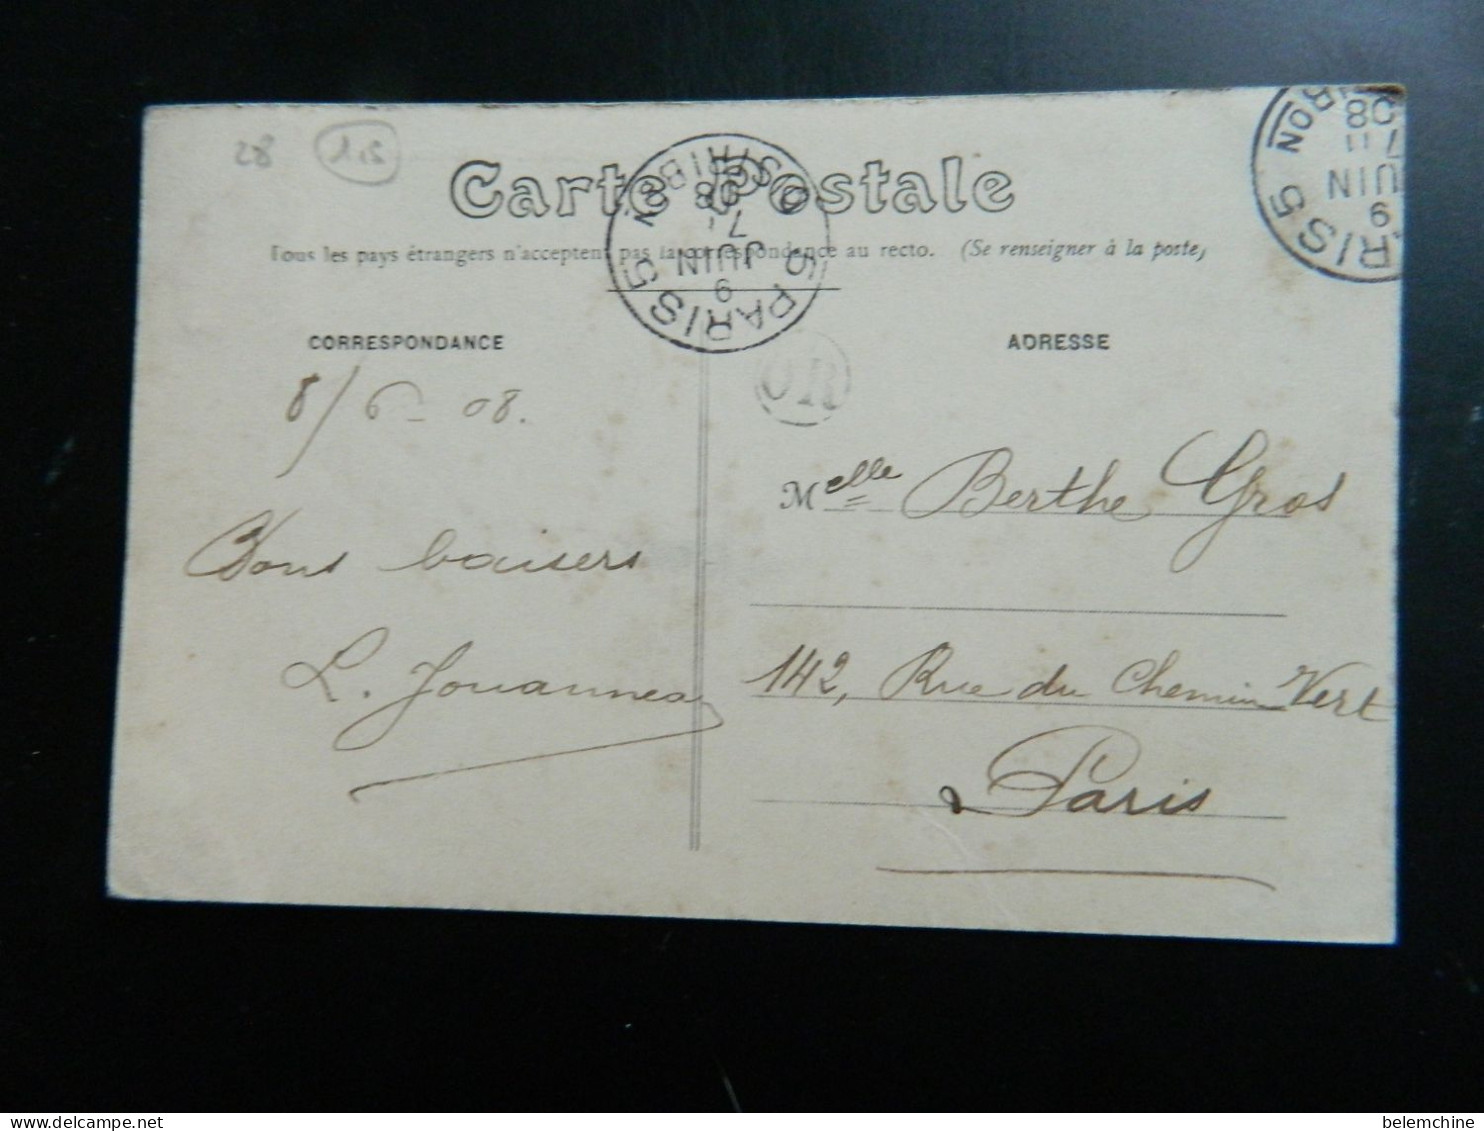 28 1,5
Carte Postale
Tous les pays étrangers n'acceptent pas la correspondance au recto. (Se renseigner à la poste)
PARIS 5
DISTRIBON
9
JUIN
7
08
PARIS 5
9
JUIN
7
08
IBON
OR
CORRESPONDANCE
8/6 - 08.
Bons baisers
L. Jouanneau
ADRESSE
Melle Berthe Gros
142, Rue du Chemin Vert
Paris
belemchine